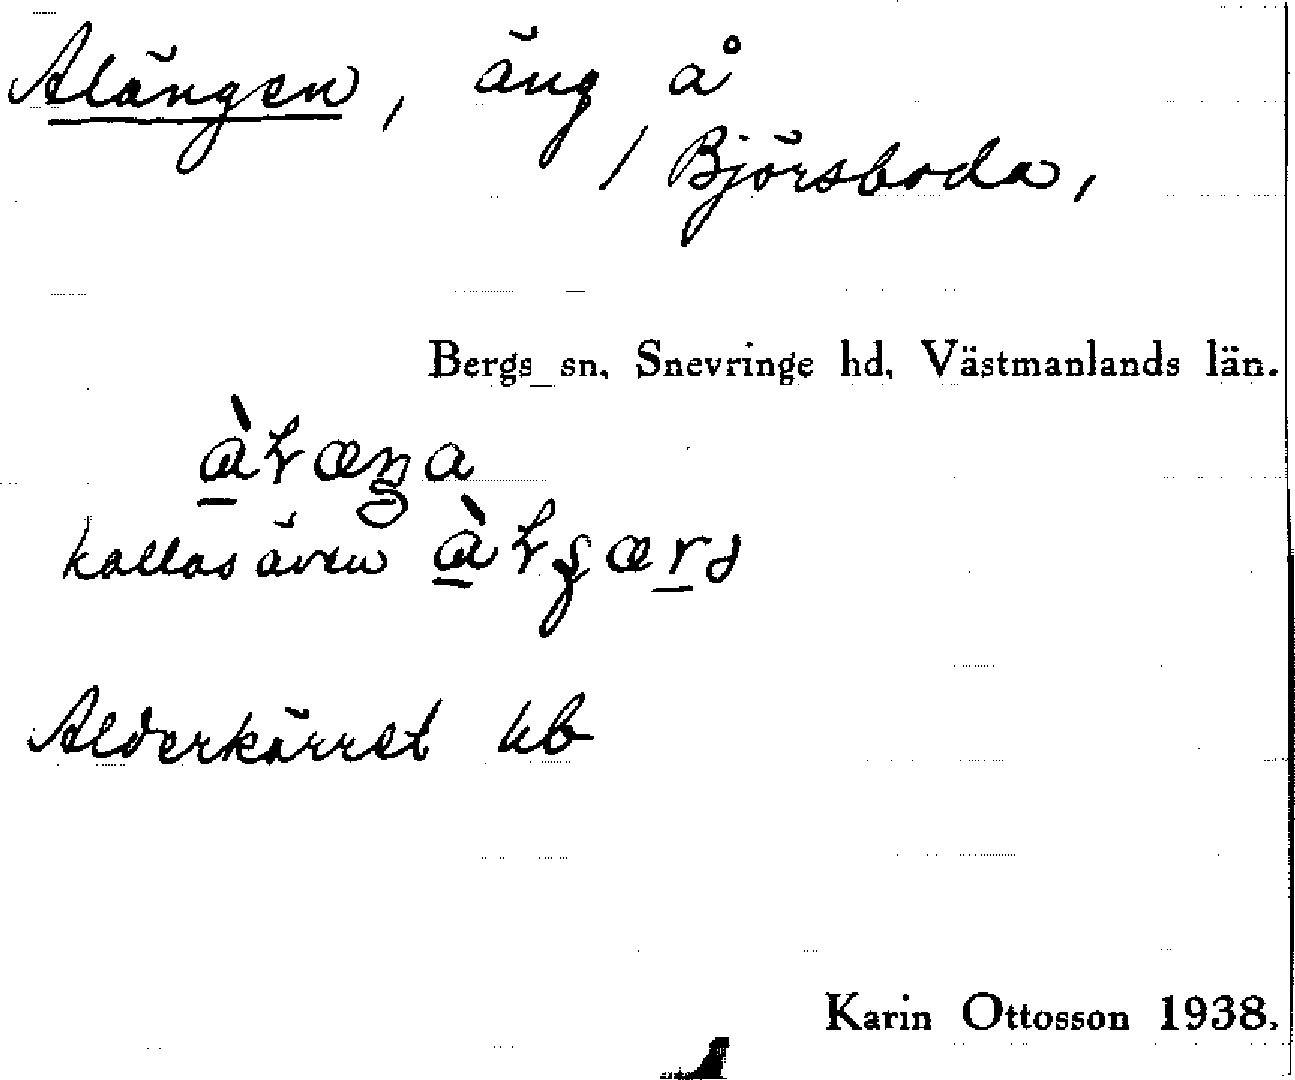 Alängen, äng å
/ Björsboda,
Bergs sn, Snevringe hd, Västmanlands län.
kallas även
Alderkärret kb
Karin Ottosson 1938.